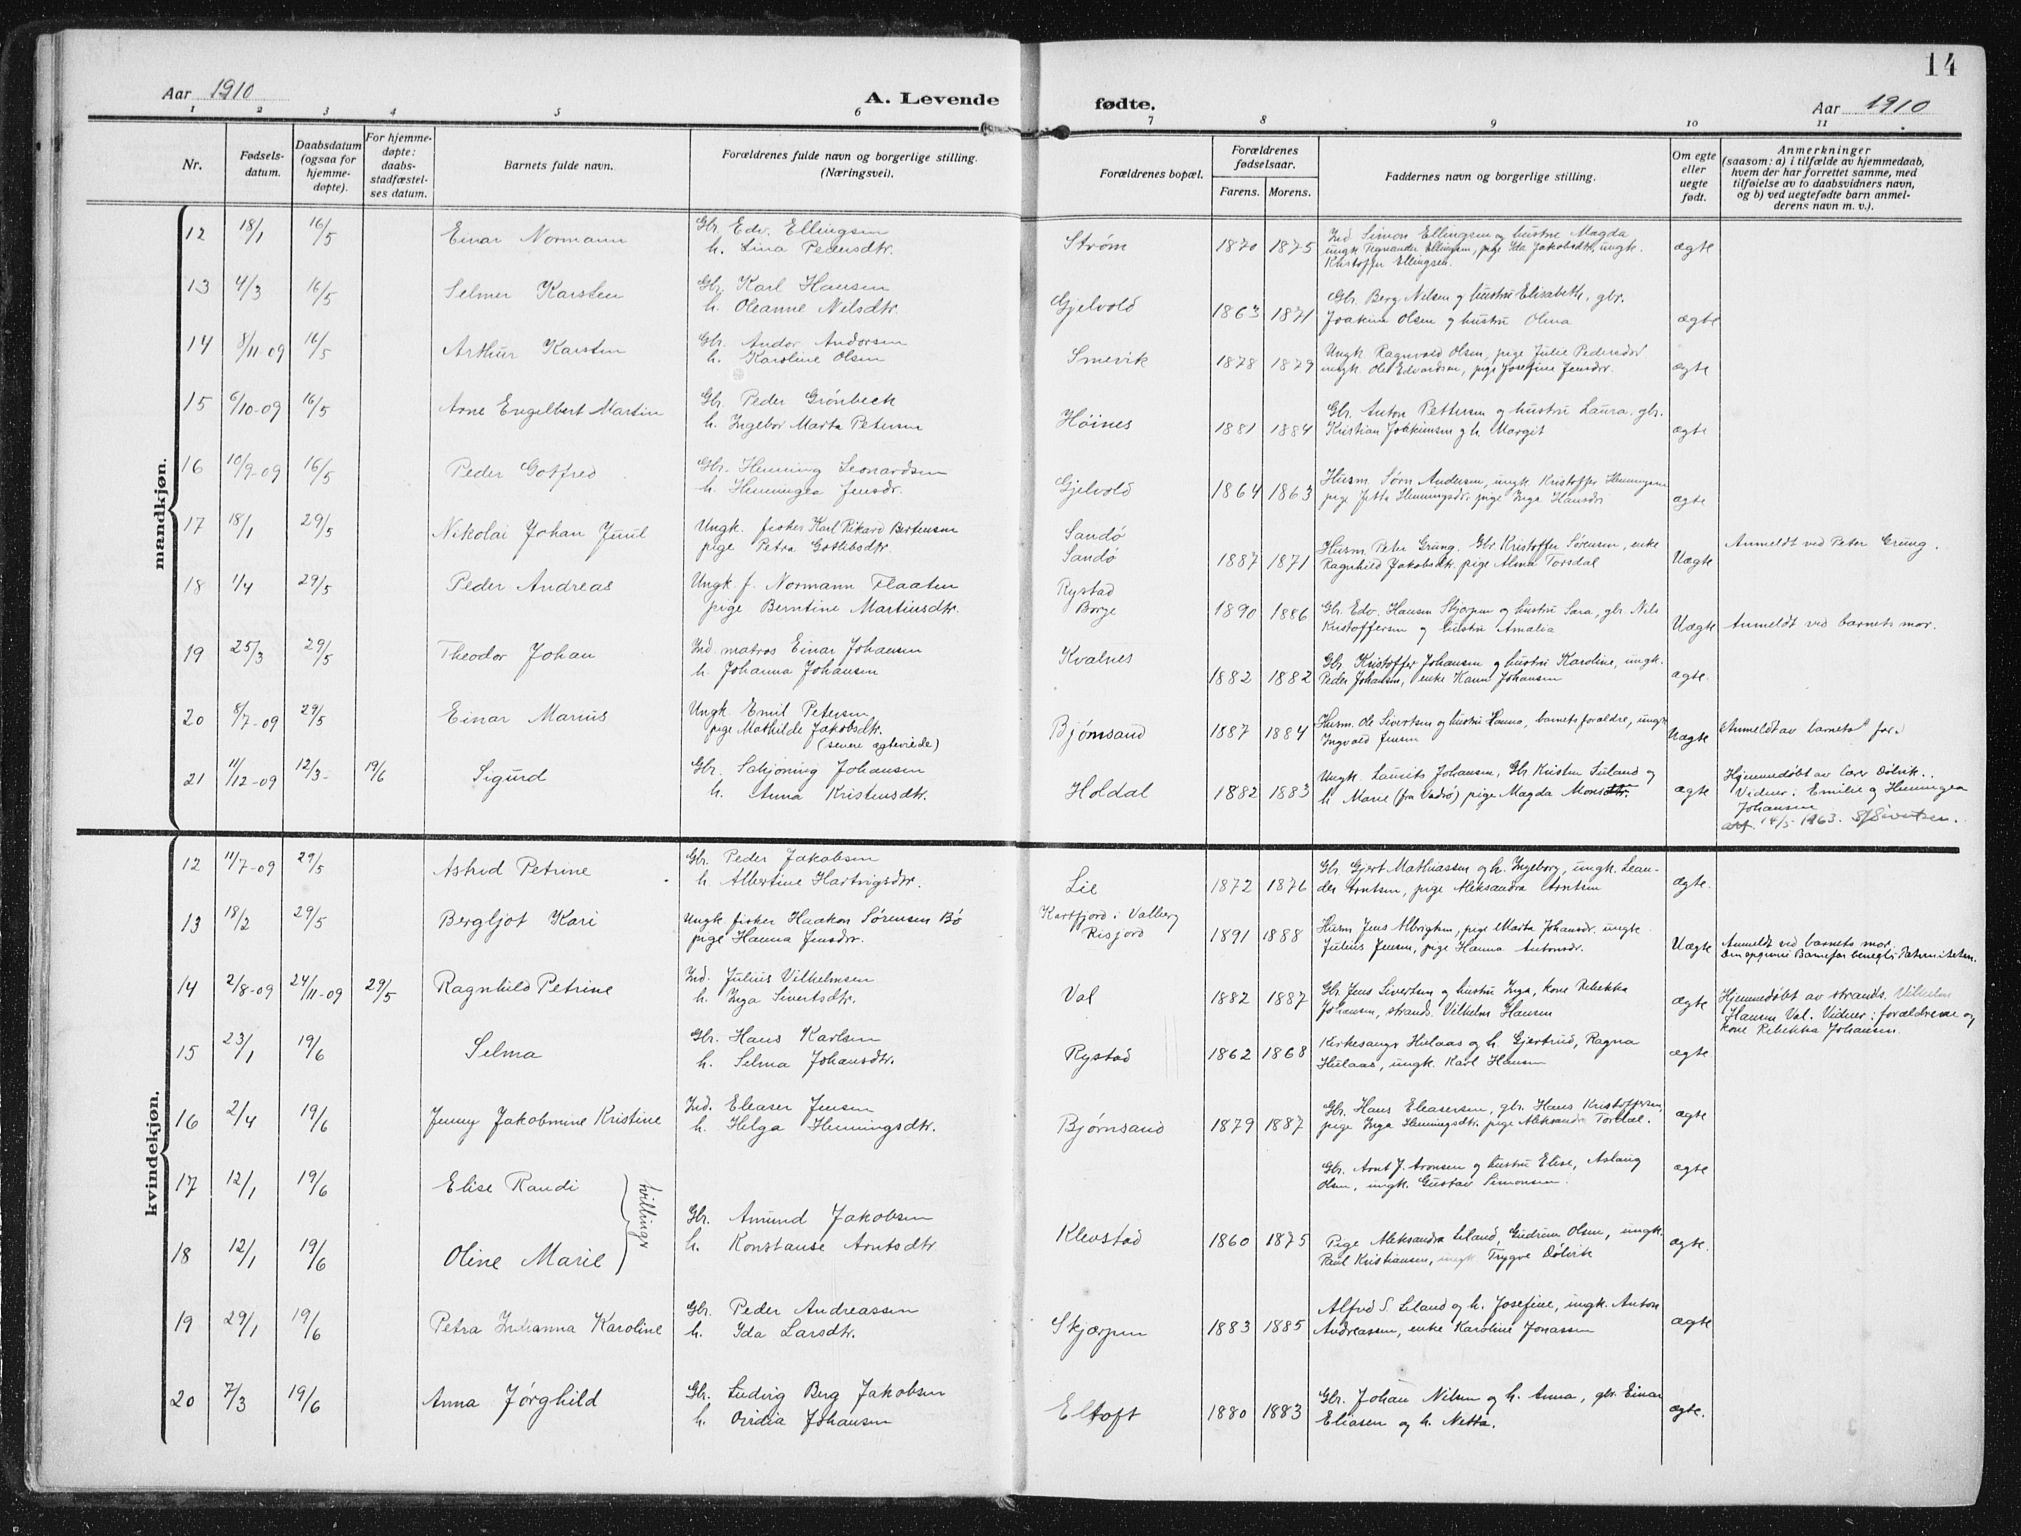 14
Aar 1910
A. Levende
fødte.
Aar 1910
1 2 3 4 5 6 7 8 9 10 11
Nr.
Fødsels-
datum.
Daabsdatum
(ogsaa for
hjemme-
døpte).
For hjemme-
døpte:
daabs-
stadfæstel-
ses datum.
Barnets fulde navn.
Forældrenes fulde navn og borgerlige stilling.
(Næringsvei).
Forældrenes bopæl.
Forældrenes
fødselsaar.
Farens. Morens.
Faddernes navn og borgerlige stilling.
Om egte
eller
uegte
født.
Anmerkninger
(saasom: a) i tilfælde av hjemmedaab,
hvem der har forrettet samme, med
tilføielse av to daabsvidners navn,
og b) ved uegtefødte barn anmel-
derens navn m. v.).
mandkjøn.
12 18/1 16/5 Einar Normann Gbr. Edv. Ellingsen
h. Lina Pedersdtr.
Strøm 1870 1875 Ind. Simon Ellingsen og hustru Magda
ungk. Ellingsen, pige Ida Jakobsdtr, ungk.
Kristoffer Ellingsen.
ægte
13 4/3 16/5 Selmer Karsten Gbr. Karl Hansen
h. Oleanne Nilsdtr.
Gjelvold 1863 1871 Gbr. Berg Nilsen og hustru Elisabeth, gbr.
Joakim Olsen og hustru Olina
ægte
14 8/11-09 16/5 Arthur Karsten Gbr. Andor Andorsen
h. Karoline Olsen
Smevik 1878 1879 Ungk. Ragnvald Olsen, pige Julie Pedersdtr
ungk. Ole Edvardsen, pige Josefine Jensdtr.
ægte
15 6/10-09 16/5 Arne Engelbert Martin Gbr. Peder Grønbeck
h. Ingebor Marta Petersen
Høines 1881 1884 Gbr. Anton Pettersen og hustru Laura, gbr.
Kristian Joakimsen og h. Margit
ægte
16 10/9-09 16/5 Peder Gotfred Gbr. Henning Leonardsen
h. Henningea Jensdr.
Gjelvold 1864 1863 Husm. Sørn Andersen, ungk. Kristoffer Henningsen
pige Jetta Henningsdtr, pige Inga Hansdr
ægte
17 18/1 29/5 Nikolai Johan Juul Ungk. fisker Karl Rikard Bertensen
pige Petra Gotlibsdtr.
Sandø
Sandø
1887 1871 Husm. Peter Grung, Gbr. Kristoffer Sørensen, enke
Ragnhild Jakobsdtr. pige Alma Torsdal
Uægte Anmeldt ved Peter Grung.
18 1/4 29/5 Peder Andreas Ungk. f. Normann Flaaten
pige Berntine Martinsdtr.
Rystad
Borge
1890 1886 Gbr. Edv. Hansen Skjærpen og hustru Sara, gbr. Nils
Kristoffersen og hustru Amalia
Uægte Anmeldt ved barnets mor.
19 25/3 29/5 Theodor Johan Ind. matros Einar Johansen
h. Johanna Johansen
Kvalnes 1882 1882 Gbr. Kristoffer Johansen og hustru Karoline, ungk.
Peder Johansen, enke Johansen
ægte.
20 8/7-09 29/5 Einar Marius Ungk. Emil Petersen
pige Mathilde Jakobsdtr.
(senere egteviede)
Bjørnsand 1887 1884 Husm. Ole Sivertsen og hustru Hanna, barnets foraldre, ungk.
Ingvald Jensen
Uægte Anmeldt av barnets far.
21 11/12-09 12/3- 19/6 Sigurd Gbr. Schjøning Johansen
h. Anna Kristensdtr.
Holdal 1882 1883 Ungk. Laurits Johansen, Gbr Kristen Liland og
h. Marie (fra Vadsø) pige Magda Monsdtr.
ægte Hjemmedøbt av lærer Dølvik.
Vidner: Emilie og Henningea
Johansen
14/5-1963.
kvindekjøn.
12 11/7-09 29/5 Astrid Petrine Gbr. Peder Jakobsen
h. Albertine Hartvigsdtr.
Lie 1872 1876 Gbr. Gjert Mathiassen og h. Ingeborg, ungk. Lean-
der Arntsen, pige Aleksandra Arntsen
ægte.
13 18/2 29/5 Bergljot Kari Ungk fisker Haakon Sørensen Bø
pige Hanna Jensdr.
Kartfjord i Valberg
Risjord
1891 1888 Husm. Jens Albrigtsen, pige Marta Johansdr. ungk.
Julius Jensen, pige Hanna Antonsdr.
Uægte Anmeldt ved barnets mor
Den opgivne Barnefar benegter Paterniteten.
14 2/8-09 24/11-09 29/5 Ragnhild Petrine Ind. Julius Vilhelmsen
h. Inga Sivertsdtr.
Val 1882 1887 Gbr. Jens Sivertsen og hustru Inga, kone Rebekka
Johansen, strands. Vilhelm Hansen
ægte Hjemmedøbt av strands. Vilhelm
Hansen Val. Vidner: forældrene og
kone Rebekka Johansen.
15 23/1 19/6 Selma Gbr. Hans Karlsen
h. Selma Johansdtr.
Rystad 1862 1868 Kirkesanger Hulaas og h. Gjertrud, Ragna
Hulaas, ungk. Karl Hansen
ægte
16 2/4 19/6 Jenny Jakobmine Kristine Ind. Eleaser Jensen
h. Helga Henningsdtr.
Bjørnsand 1879 1887 Gbr. Hans Eleasersen, gbr. Hans Kristoffersen,
pige Inga Henningsdtr. pige Aleksandra Torsdal.
ægte
17 12/1 19/6 Elise Randi
Gbr. Arnt J. Aronsen og hustru Elise, Aslaug
Olsen, ungk. Gustav Simonsen.
ægte
tvillinger
Gbr. Amund Jakobsen
h. Konstanse Arntsdtr
Klevstad 1860 1875
18 12/1 19/6 Oline Marie
Pige Aleksandra Liland, Gudrun Olsen, ungk.
Paul Kristiansen, ungk Trygve Dølvik
ægte.
19 29/1 19/6 Petra Johanna Karoline Gbr. Peder Andreassen
h. Ida Larsdtr.
Skjærpen 1883 1885 Alfred S. Liland og h. Josefine, ungk. Anton
Andreassen, enke Karoline Jonassen
ægte
20 7/3 19/6 Anna Jørghild Gbr. Ludvig Berg Jakobsen
h. Ovidia Johansen
Eltoft 1880 1883 Gbr. Johan Nilsen og h. Anna, gbr. Einar
Eliasen og h. Netta.
ægte.